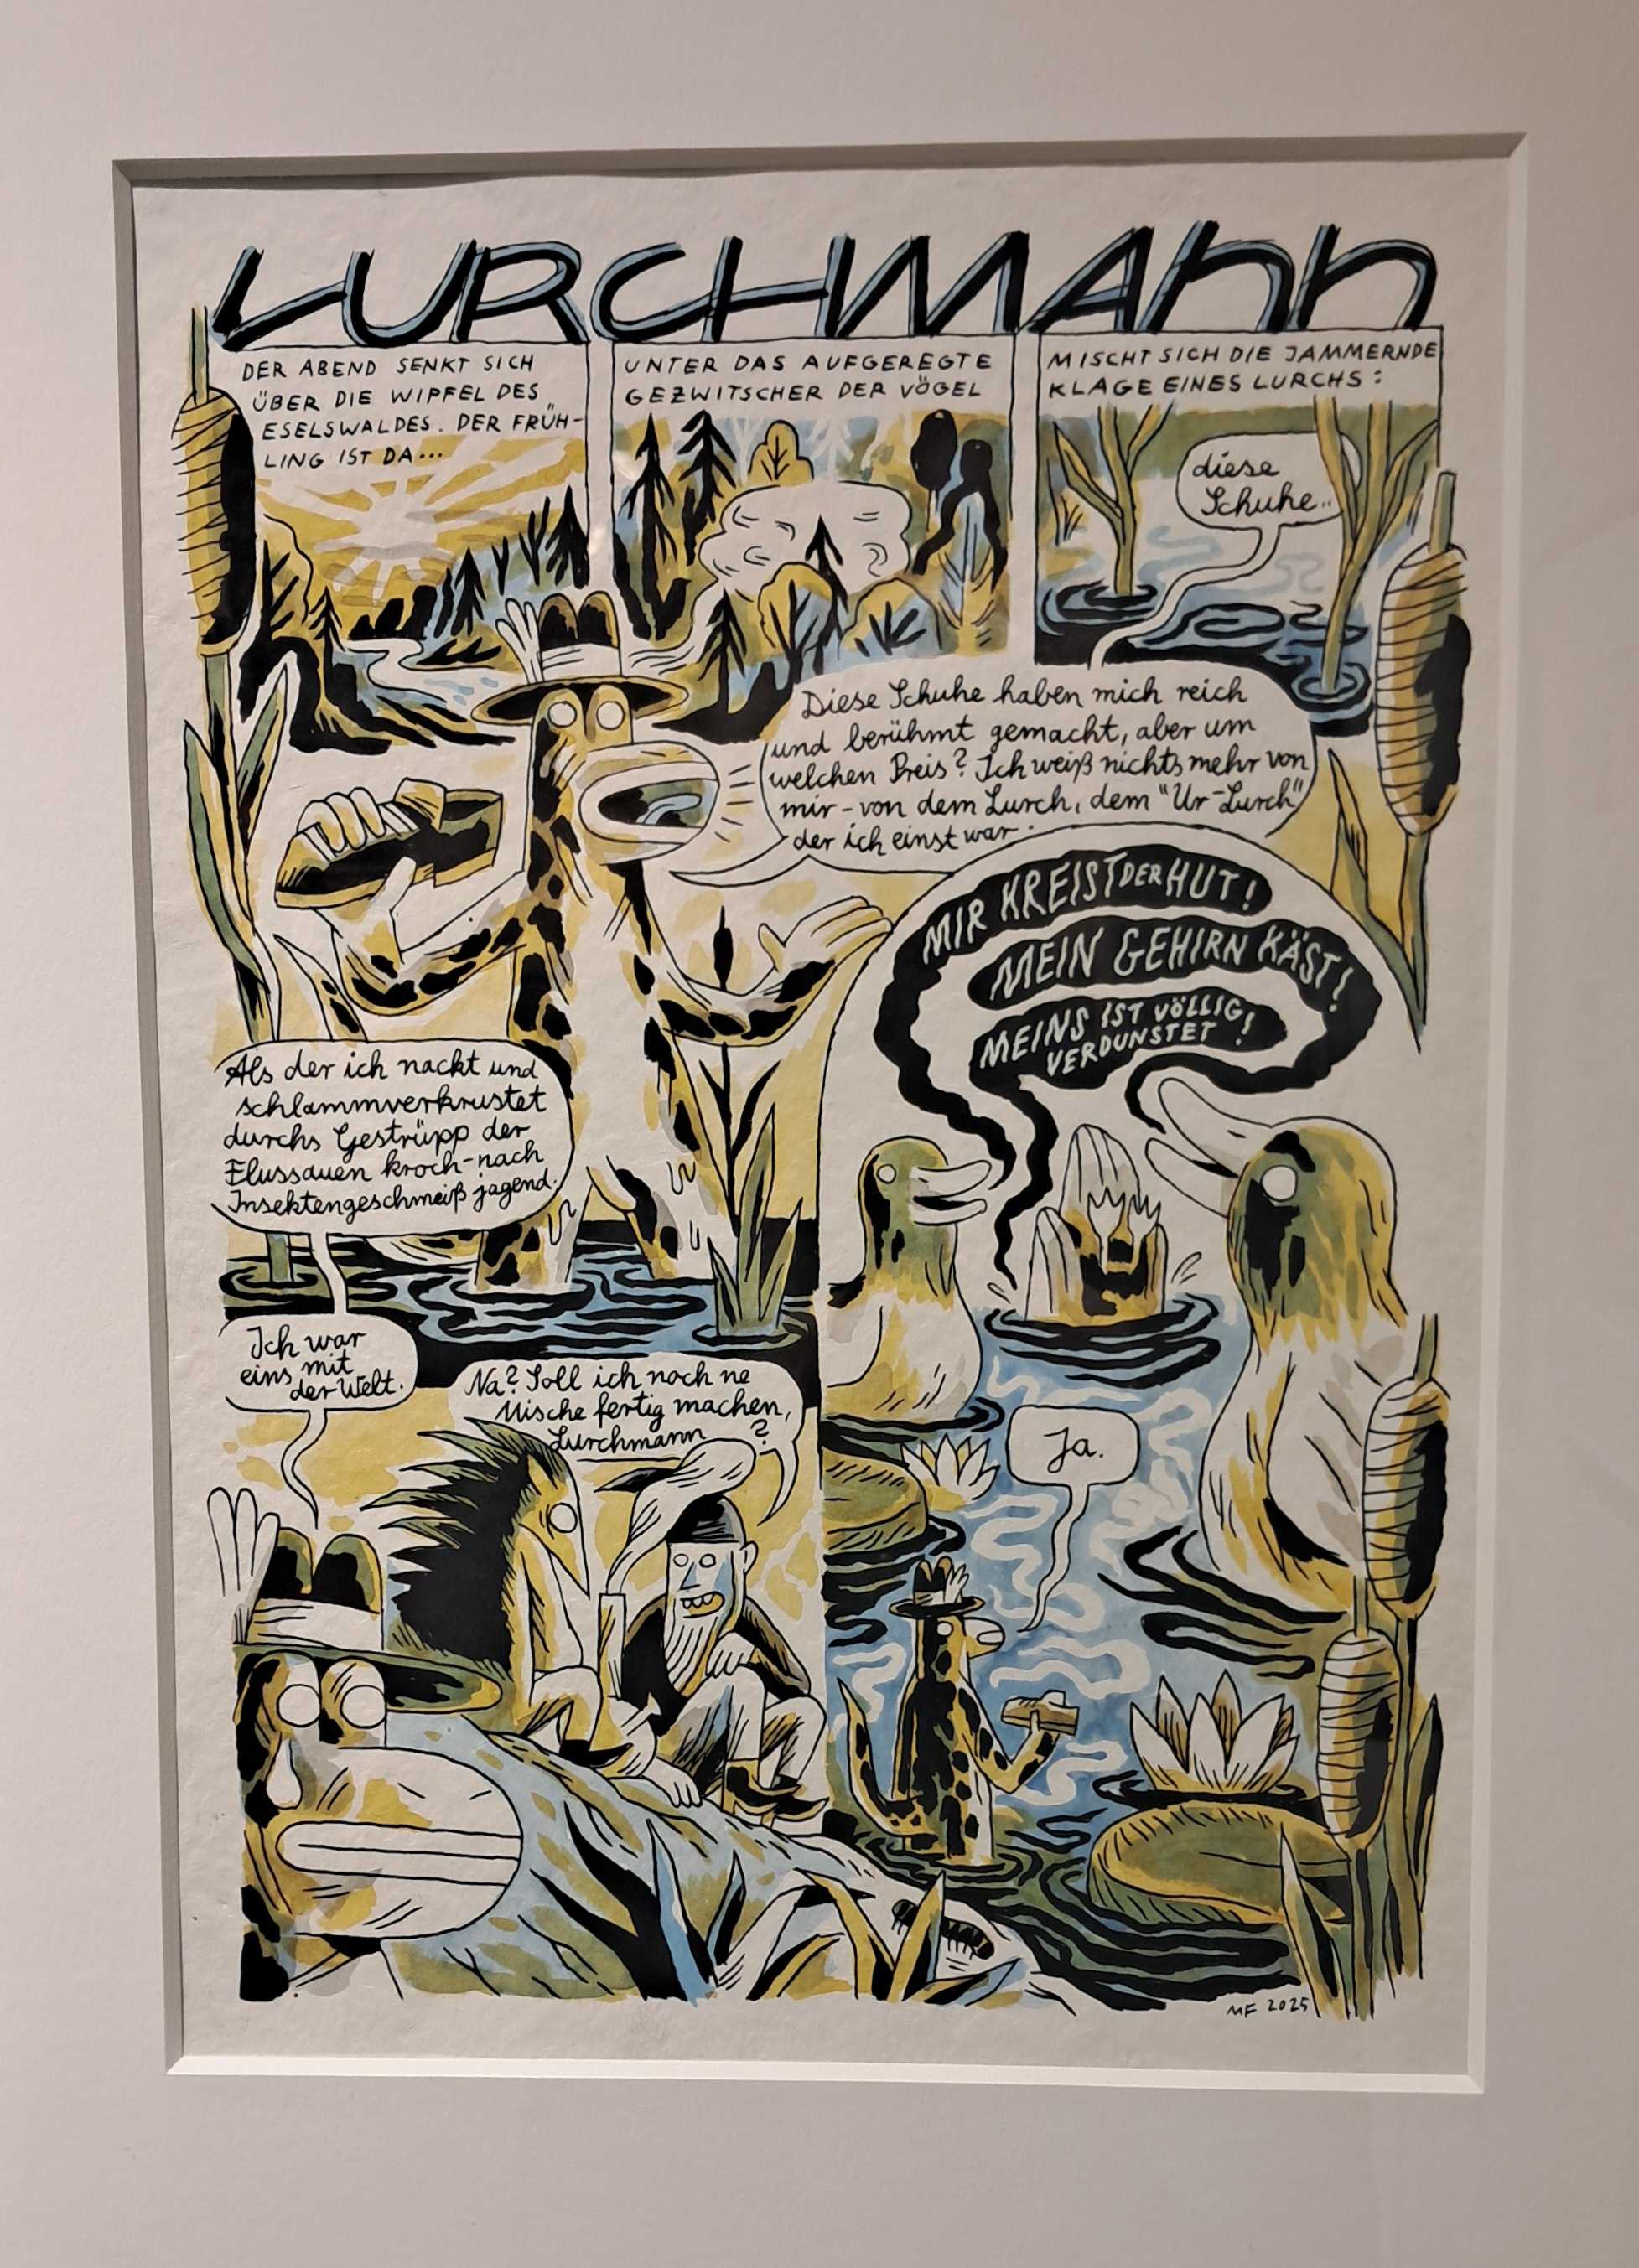 LURCHMANN
DER ABEND SENKT SICH
ÜBER DIE WIPFEL DES
ESELSWALDES. DER FRÜH-
LING IST DA...
UNTER DAS AUFGEREGTE
GEZWITSCHER DER VÖGEL
MISCHT SICH DIE JAMMERNDE
KLAGE EINES LURCHS:
diese
Schuhe..
Diese Schuhe haben mich reich
und berühmt gemacht, aber um
welchen Preis? Ich weiß nichts mehr von
mir - von dem Lurch, dem "Ur-Lurch"
der ich einst war.
Als der ich nackt und
schlammverkrustet
durchs Gestrüpp der
Flussauen kroch - nach
Insektengeschmeiß jagend.
MIR KREIST DER HUT!
MEIN GEHIRN KÄST!
MEINS IST VÖLLIG
VERDUNSTET!
Ich war
eins mit
der Welt.
Na? Soll ich noch ne
Mische fertig machen,
Lurchmann?
Ja.
MF 2025